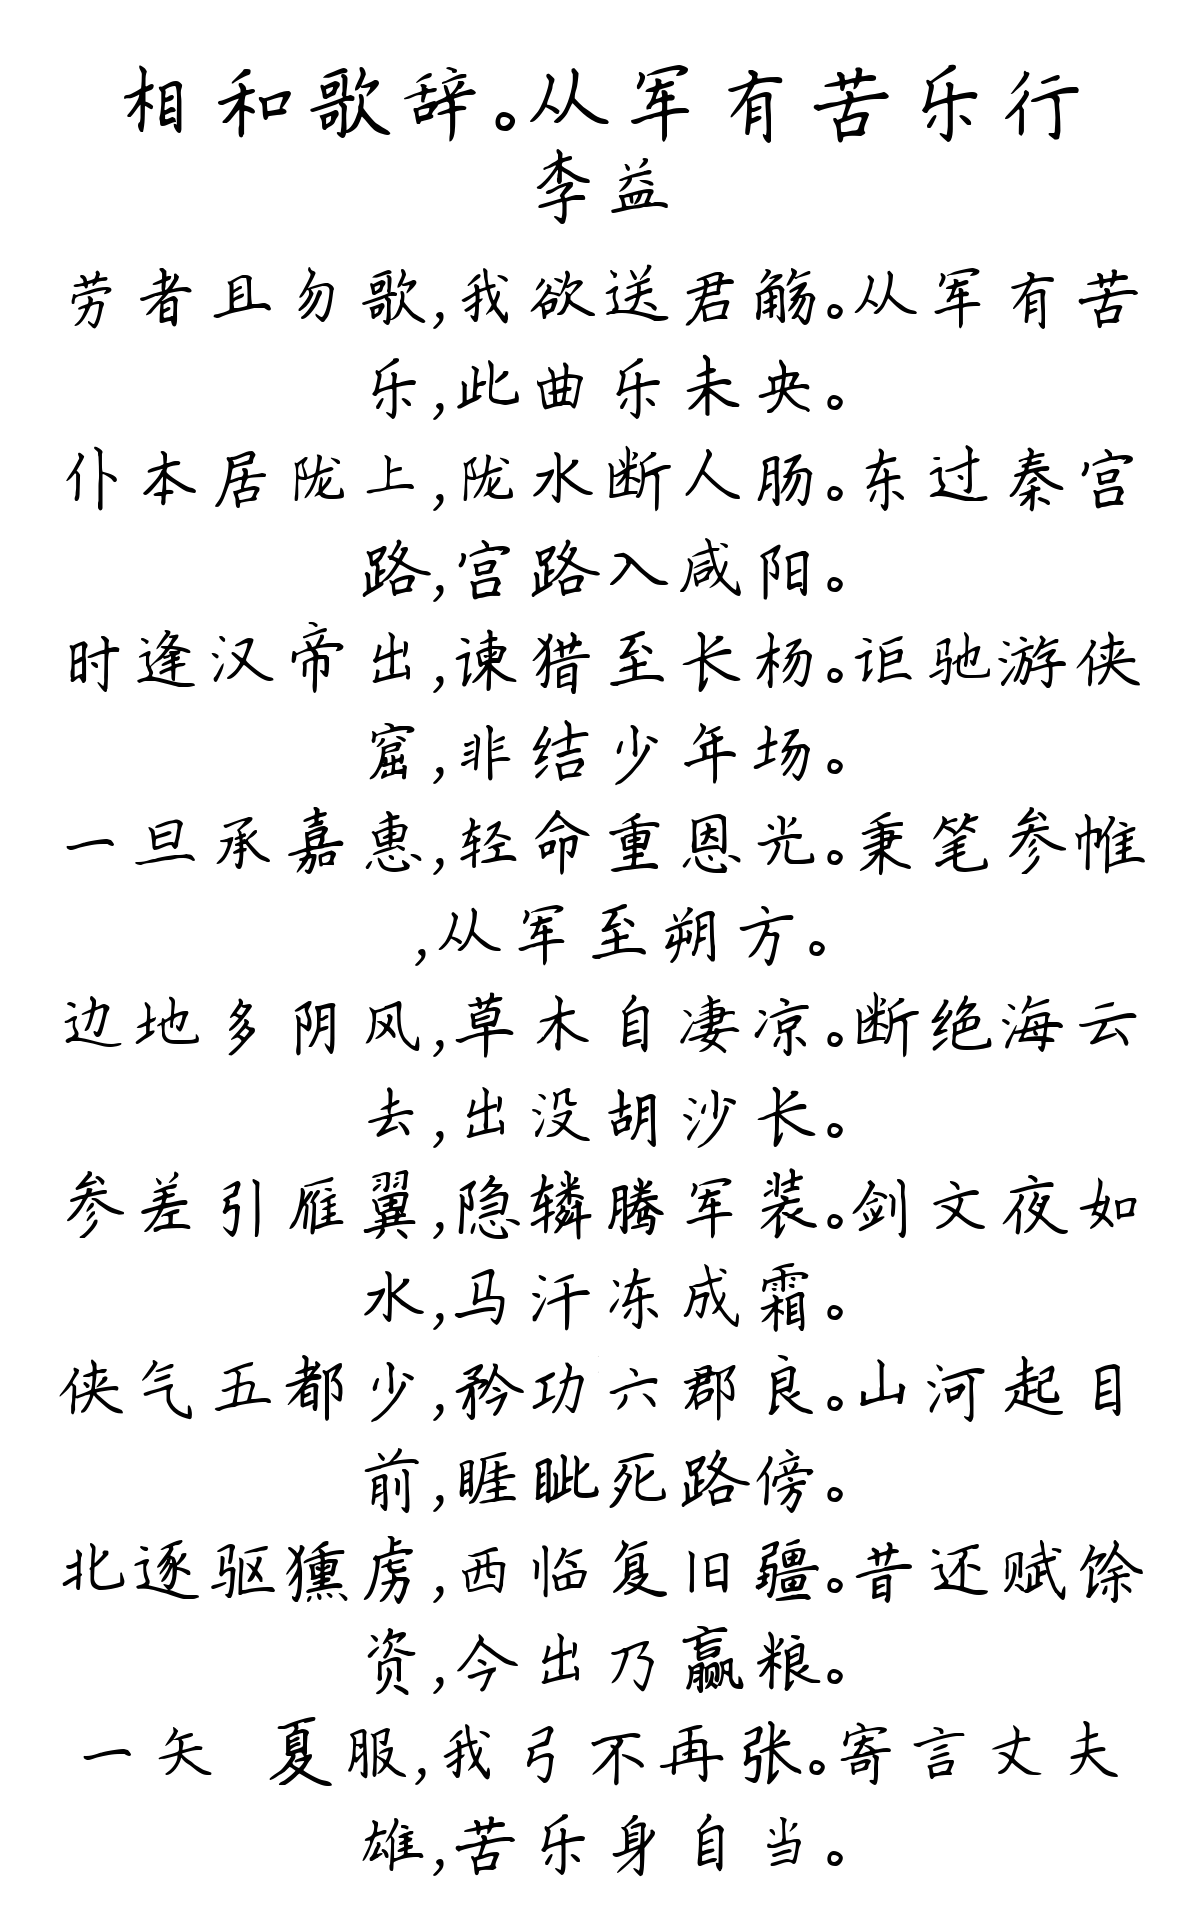 相和歌辞。从军有苦乐行
李益
劳者且勿歌,我欲送君觞。从军有苦
乐,此曲乐未央。
仆本居陇上,陇水断人肠。东过秦宫
路,宫路入咸阳。
时逢汉帝出,谏猎至长杨。讵驰游侠
窟,非结少年场。
一旦承嘉惠,轻命重恩光。秉笔参帷
,从军至朔方。
边地多阴风,草木自凄凉。断绝海云
去,出没胡沙长。
参差引雁翼,隐辚腾军装。剑文夜如
水,马汗冻成霜。
侠气五都少,矜功六郡良。山河起目
前,睚眦死路傍。
北逐驱獯虏,西临复旧疆。昔还赋馀
资,今出乃赢粮。
一矢 夏服,我弓不再张。寄言丈夫
雄,苦乐身自当。